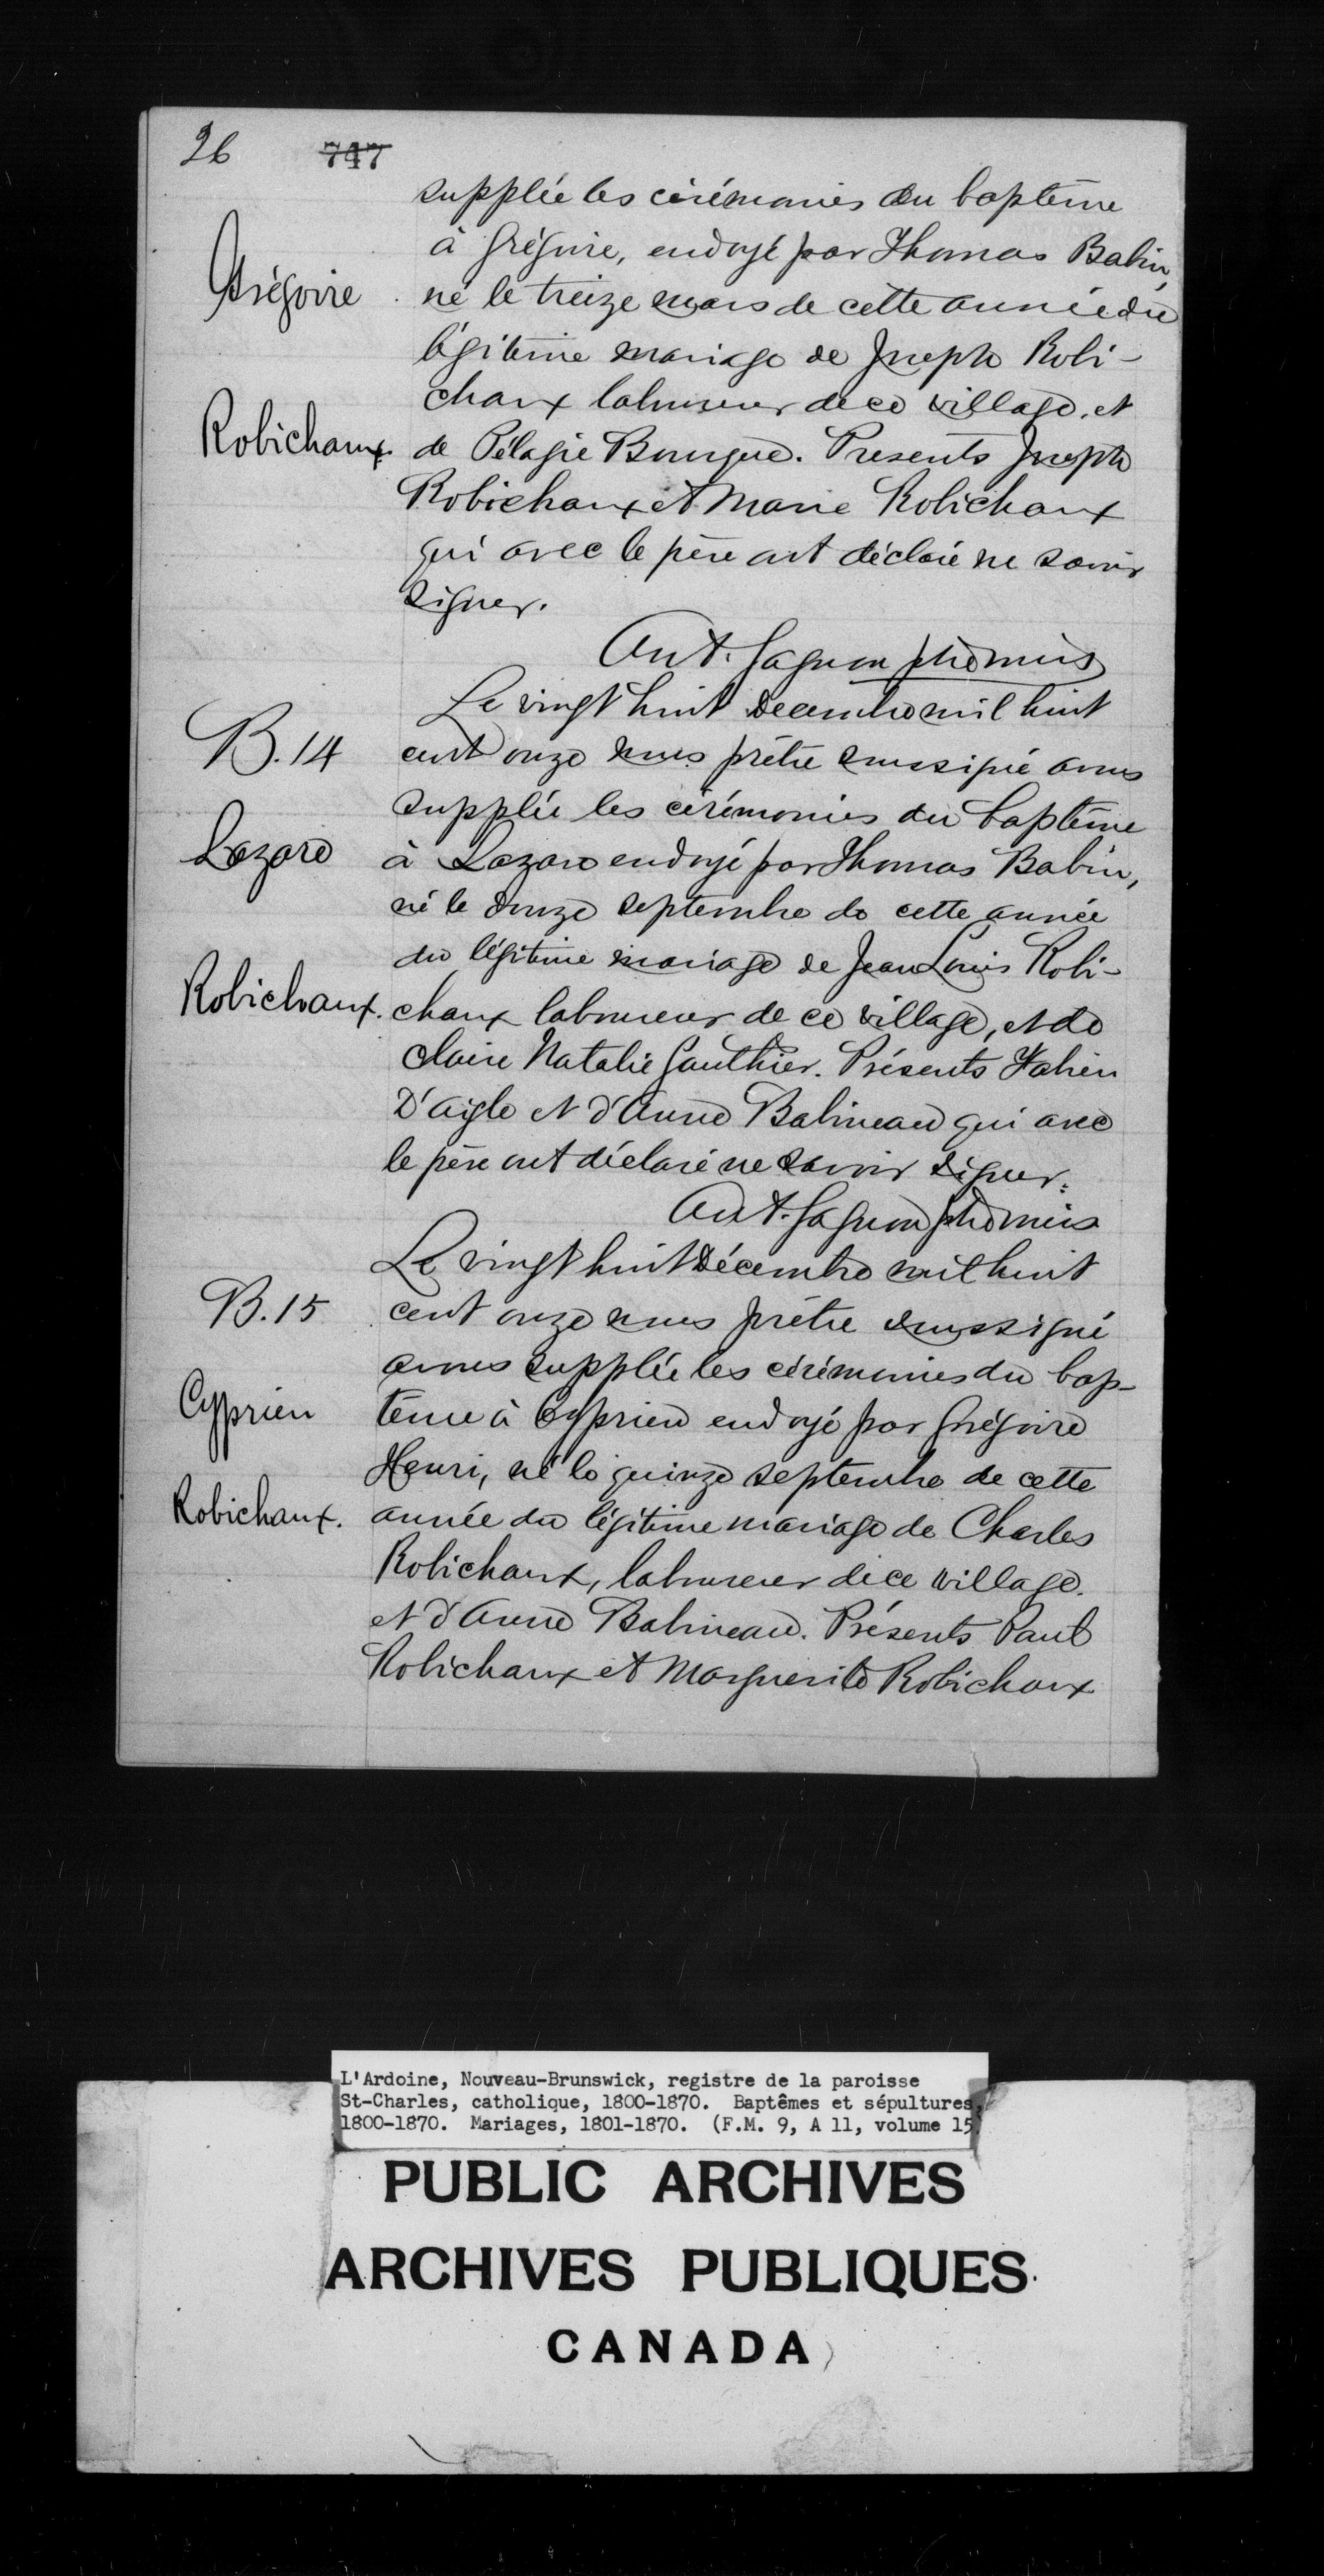 26 747
supplée les cérémonies du baptême
à Grégoire, endoyé par Thomas Babin,
Grégoire
né le treize mars de cette année du
légitime mariage de Joseph Robi-
chaux laboureur de ce village, et
Robichaux.
de Pélagie Bourque. Presents Joseph
Robichaux et Marie Robichaux
qui avec le père ont déclaré ne savoir
signer.
Ant. Gagnon ptre miss
Le vingt huit Decembre mil huit
B. 14
cent onze nous prêtre soussigné avons
supplée les cérémonies du baptême
Lazare
à Lazare endoyé par Thomas Babin,
né le douze septembre de cette année
du légitime mariage de Jean Louis Robi-
Robichaux.
chaux laboureur de ce village, et de
Claire Natalie Gauthier. Présents Fabien
D'aigle et d'Anne Babineau qui avec
le père ont déclaré ne savoir signer.
Ant. Gagnon ptre miss
Le vingt huit Décembre mil huit
B. 15
cent onze nous prêtre soussigné
avons supplée les cérémonies du bap-
Cyprien
tême à Cyprien endoyé par Grégoire
Henri, né le quinze septembre de cette
Robichaux.
année du légitime mariage de Charles
Robichaux, laboureur de ce village.
et d'Anne Babineau. Présents Paul
Robichaux et Marguerite Robichaux
L'Ardoine, Nouveau-Brunswick, registre de la paroisse
St-Charles, catholique, 1800-1870. Baptêmes et sépultures,
1800-1870. Mariages, 1801-1870. (F.M. 9, A 11, volume 15
PUBLIC ARCHIVES
ARCHIVES PUBLIQUES
CANADA